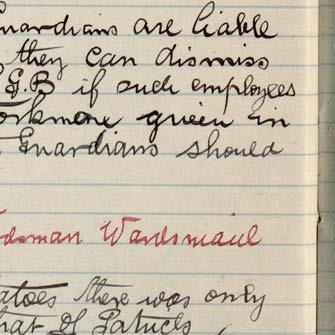 Guardians are liable
they can dismiss
G.B if such employees
workmen given in
Guardians should
Wardsman Wardsmaid
there was only
that of Patrick